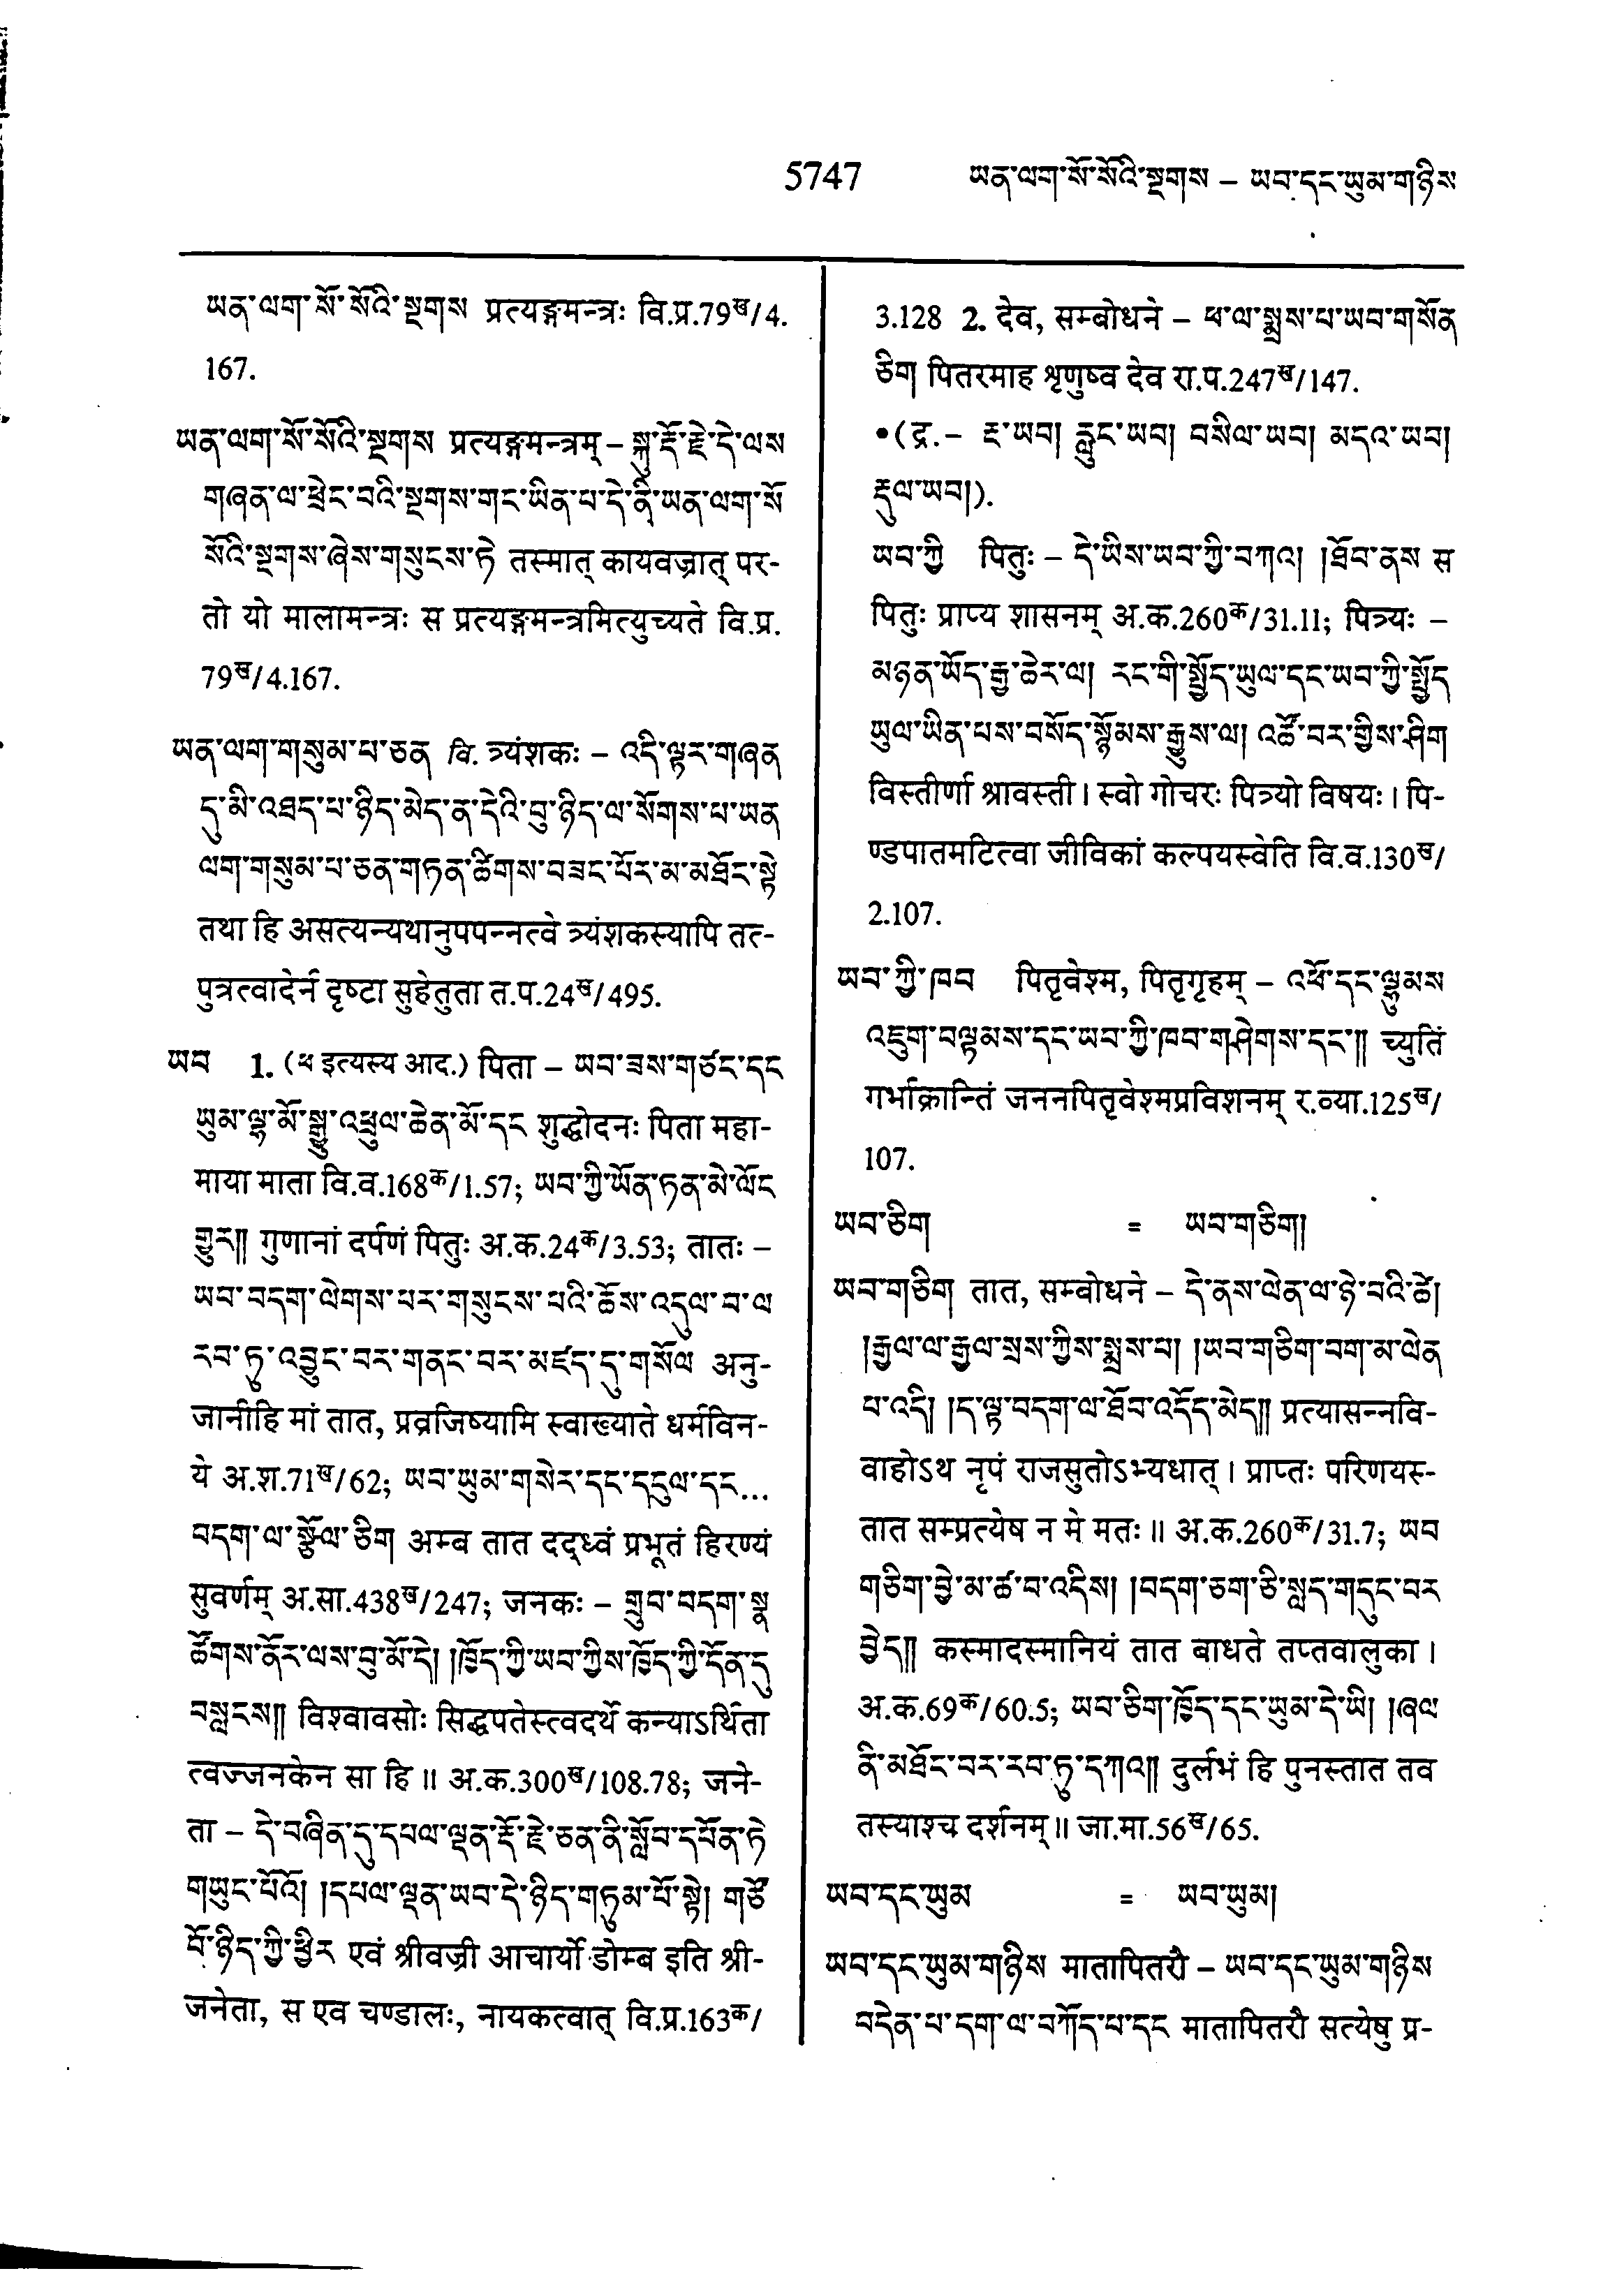 5747 ཡན་ལག་སོ་སོའི་སྔགས – ཡབ་དང་ཡུམ་གཉིས
ཡན་ལག་སོ་སོའི་སྔགས प्रत्यङ्गमन्त्रः वि.प्र.79ख/4.
167.
ཡན་ལག་སོ་སོའི་སྔགས प्रत्यङ्गमन्त्रम् – སྐུ་རྡོ་རྗེ་དེ་ལས
གཞན་ལ་ཕྲེང་བའི་སྔགས་གང་ཡིན་པ་དེ་ནི་ཡན་ལག་སོ
སོའི་སྔགས་ཞེས་གསུངས་ཏེ तस्मात् कायवज्रात् पर-
तो यो मालामन्त्रः स प्रत्यङ्गमन्त्रमित्युच्यते वि.प्र.
79ख/4.167.
ཡན་ལག་གསུམ་པ་ཅན वि. त्र्यंशकः – འདི་ལྟར་གཞན
དུ་མི་འཐད་པ་ཉིད་མེད་ན་དེའི་བུ་ཉིད་ལ་སོགས་པ་ཡན
ལག་གསུམ་པ་ཅན་གཏན་ཚིགས་བཟང་པོར་མ་མཐོང་སྟེ
तथा हि असत्यन्यथानुपपन्नत्वे त्र्यंशकस्यापि तत्-
पुत्रत्वादेर्न दृष्टा सुहेतुता त.प.24ख/495.
ཡབ 1. (ཕ इत्यस्य आद.) पिता – ཡབ་ཟས་གཙང་དང
ཡུམ་ལྷ་མོ་སྒྱུ་འཕྲུལ་ཆེན་མོ་དང शुद्धोदनः पिता महा-
माया माता वि.व.168क/1.57; ཡབ་ཀྱི་ཡོན་ཏན་མེ་ལོང
གྱུར༎ गुणानां दर्पणं पितुः अ.क.24क/3.53; तातः –
ཡབ་བདག་ལེགས་པར་གསུངས་པའི་ཆོས་འདུལ་བ་ལ
རབ་ཏུ་འབྱུང་བར་གནང་བར་མཛད་དུ་གསོལ अनु-
जानीहि मां तात, प्रव्रजिष्यामि स्वाख्याते धर्मविन-
ये अ.श.71ख/62; ཡབ་ཡུམ་གསེར་དང་དངུལ་དང...
བདག་ལ་སྩོལ་ཅིག अम्ब तात दद्ध्वं प्रभूतं हिरण्यं
सुवर्णम् अ.सा.438ख/247; जनकः – གྲུབ་བདག་སྣ
ཚོགས་ནོར་ལས་བུ་མོ་དེ། །ཁྱོད་ཀྱི་ཡབ་ཀྱིས་ཁྱོད་ཀྱི་དོན་དུ
བསླངས༎ विश्वावसोः सिद्धपतेस्त्वदर्थे कन्याऽर्थिता
त्वज्जनकेन सा हि ॥ अ.क.300ख/108.78; जने-
ता – དེ་བཞིན་དུ་དཔལ་ལྡན་རྡོ་རྗེ་ཅན་ནི་སློབ་དཔོན་ཏེ
གཡུང་པོའོ། །དཔལ་ལྡན་ཡབ་དེ་ཉིད་གཏུམ་པོ་སྟེ། གཙོ
བོ་ཉིད་ཀྱི་ཕྱིར एवं श्रीवज्री आचार्यो डोम्ब इति श्री-
जनेता, स एव चण्डालः, नायकत्वात् वि.प्र.163क/
3.128 2. देव, सम्बोधने – ཕ་ལ་སྨྲས་པ་ཡབ་གསོན
ཅིག पितरमाह शृणुष्व देव रा.प.247ख/147.
•(द्र.– རྔ་ཡབ། རླུང་ཡབ། བསིལ་ཡབ། མདའ་ཡབ།
རྡུལ་ཡབ།).
ཡབ་ཀྱི पितुः – དེ་ཡིས་ཡབ་ཀྱི་བཀའ། །ཐོབ་ནས स
पितुः प्राप्य शासनम् अ.क.260क/31.11; पित्र्यः –
མཉན་ཡོད་རྒྱ་ཆེར་ལ། རང་གི་སྤྱོད་ཡུལ་དང་ཡབ་ཀྱི་སྤྱོད
ཡུལ་ཡིན་པས་བསོད་སྙོམས་རྒྱུས་ལ། འཚོ་བར་གྱིས་ཤིག
विस्तीर्णा श्रावस्ती । स्वो गोचरः पित्र्यो विषयः । पि-
ण्डपातमटित्वा जीविकां कल्पयस्वेति वि.व.130ख/
2.107.
ཡབ་ཀྱི་ཁབ पितृवेश्म, पितृगृहम् – འཕོ་དང་ལྷུམས
འཇུག་བལྟམས་དང་ཡབ་ཀྱི་ཁབ་གཤེགས་དང་༎ च्युतिं
गर्भाक्रान्तिं जननपितृवेश्मप्रविशनम् र.व्या.125ख/
107.
ཡབ་ཅིག = ཡབ་གཅིག།
ཡབ་གཅིག तात, सम्बोधने – དེ་ནས་ལེན་ལ་ཉེ་བའི་ཚེ།
།རྒྱལ་ལ་རྒྱལ་སྲས་ཀྱིས་སྨྲས་པ། །ཡབ་གཅིག་བག་མ་ལེན
པ་འདི། །ད་ལྟ་བདག་ལ་ཐོབ་འདོད་མེད༎ प्रत्यासन्नवि-
वाहोऽथ नृपं राजसुतोऽभ्यधात् । प्राप्तः परिणयस्-
तात सम्प्रत्येष न मे मतः ॥ अ.क.260क/31.7; ཡབ
གཅིག་བྱེ་མ་ཚ་བ་འདིས། །བདག་ཅག་ཅི་སླད་གདུང་བར
བྱེད༎ कस्मादस्मानियं तात बाधते तप्तवालुका ।
अ.क.69क/60.5; ཡབ་ཅིག་ཁྱོད་དང་ཡུམ་དེ་ཡི། །ཞལ
ནི་མཐོང་བར་རབ་ཏུ་དཀའ༎ दुर्लभं हि पुनस्तात तव
तस्याश्च दर्शनम् ॥ जा.मा.56ख/65.
ཡབ་དང་ཡུམ = ཡབ་ཡུམ།
ཡབ་དང་ཡུམ་གཉིས मातापितरौ – ཡབ་དང་ཡུམ་གཉིས
བདེན་པ་དག་ལ་བཀོད་པ་དང मातापितरौ सत्येषु प्र-